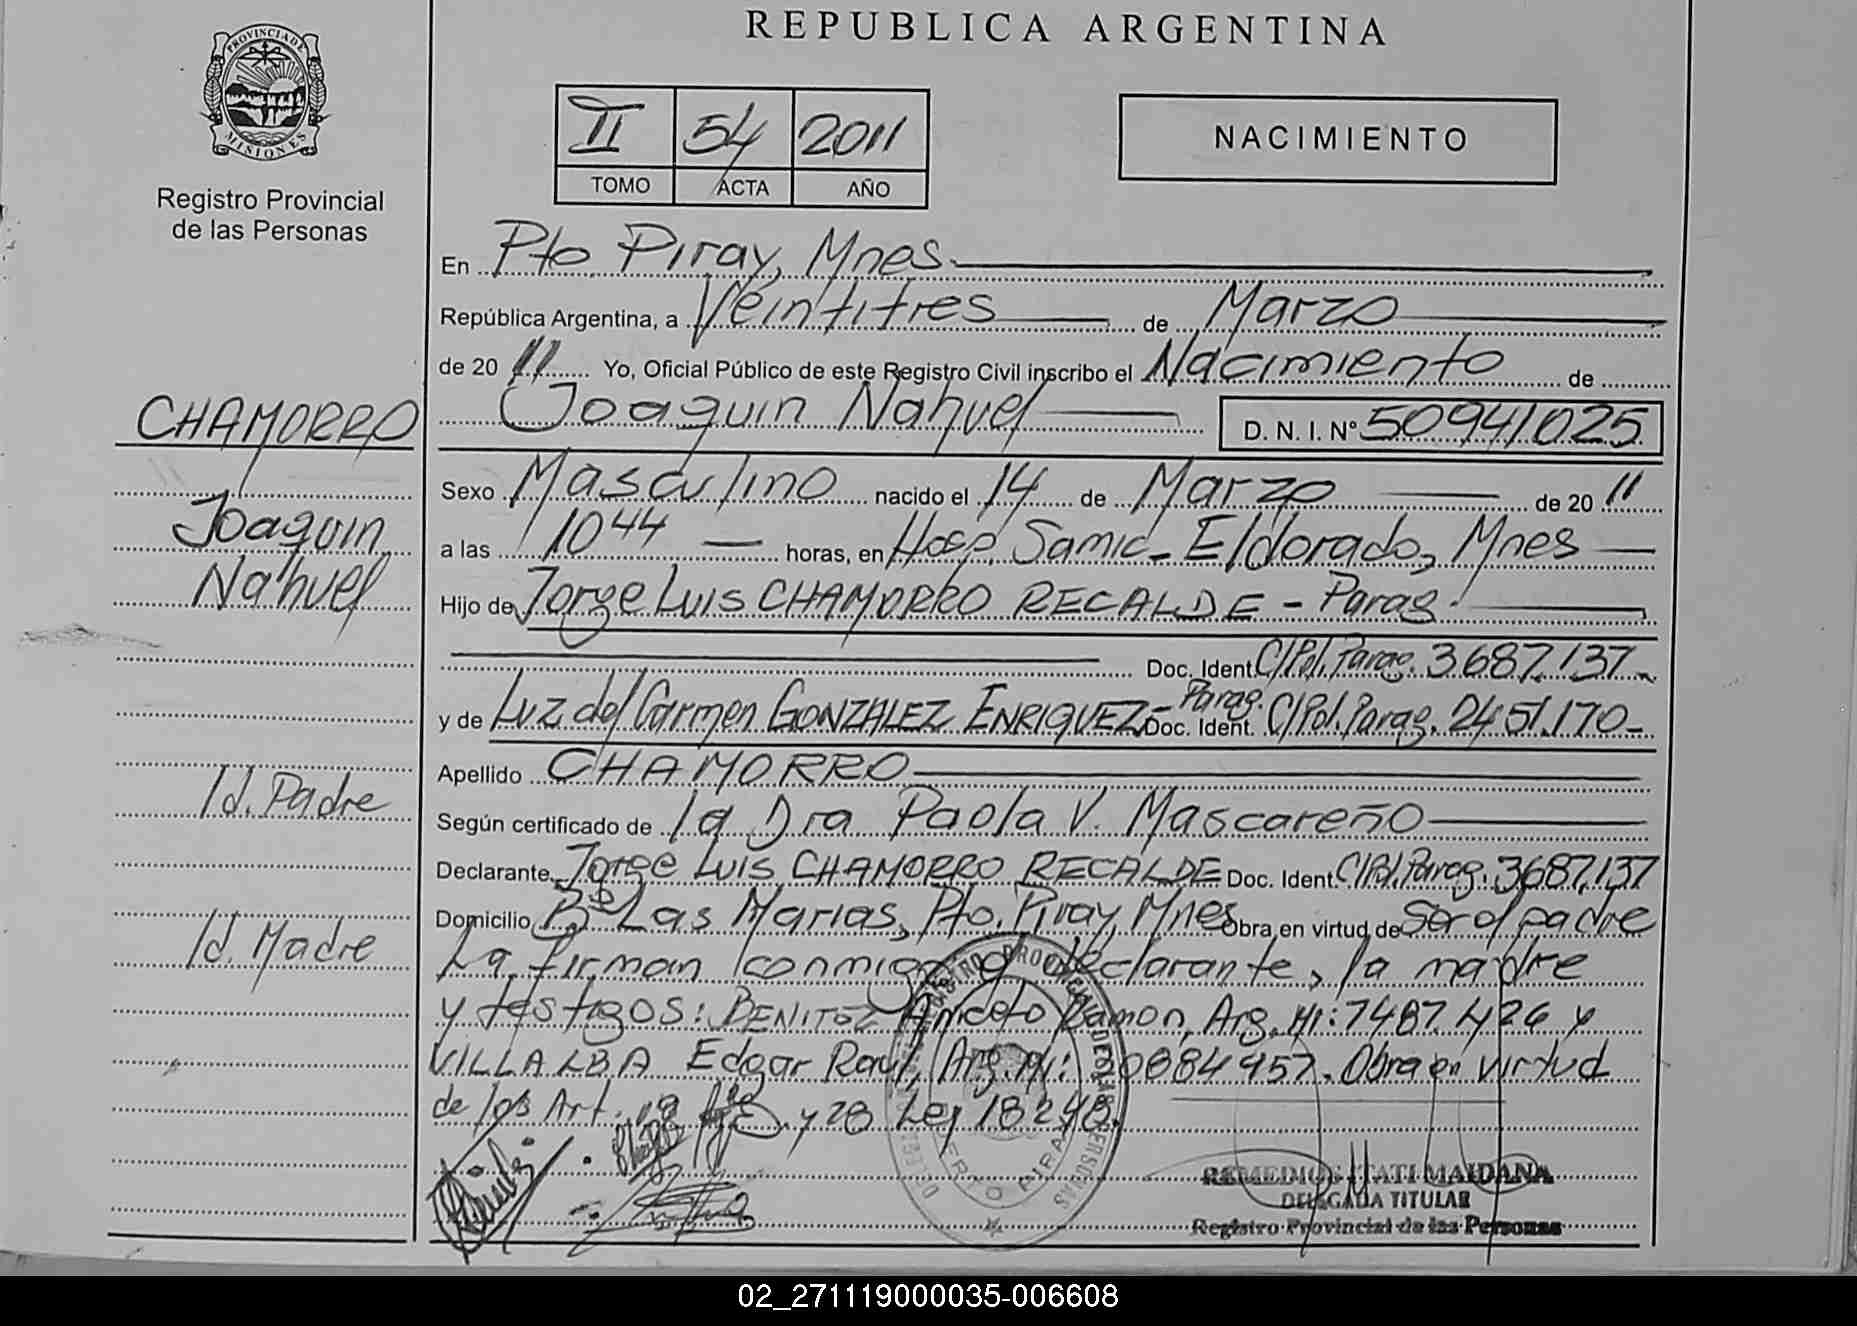 REPUBLICA ARGENTINA
PROVINCIA DE MISIONES
Registro Provincial
de las Personas
II 54 2011
TOMO ACTA AÑO
NACIMIENTO
En Pto Piray, Mnes
República Argentina, a Veintitres de Marzo
de 20 11 Yo, Oficial Público de este Registro Civil inscribo el Nacimiento de
Joaquin Nahuel D. N. I. Nº 50941025
CHAMORRO
Joaquin
Nahuel
Sexo Masculino nacido el 14 de Marzo de 20 11
a las 1044 horas, en Hosp. Samic - Eldorado, Mnes
Hijo de Jorge Luis CHAMORRO RECALDE - Parag.
Doc. Ident. C/Pol. Parag. 3687.137-
y de Luz del Carmen GONZALEZ ENRIQUEZ - Parag. Doc. Ident. C/Pol. Parag. 2451.170-
Apellido CHAMORRO
Id. Padre
Según certificado de la Dra Paola V. Mascareño
Declarante Jorge Luis CHAMORRO RECALDE Doc. Ident. C/Pol. Parag. 3687.137
Domicilio Bº Las Marias, Pto. Piray, Mnes Obra en virtud de Ser el padre
Id. Madre
La firman conmigo el declarante, la madre
y testigos: BENITEZ Aniceto Ramon, Arg. MI: 7487.426 y
VILLALBA Edgar Raul, Arg. MI: 0884957. Obra en virtud
de los Art. y 28 Ley 18248.
REMEDIOS ITATI MAIDANA
DELEGADA TITULAR
Registro Provincial de las Personas
02_271119000035-006608